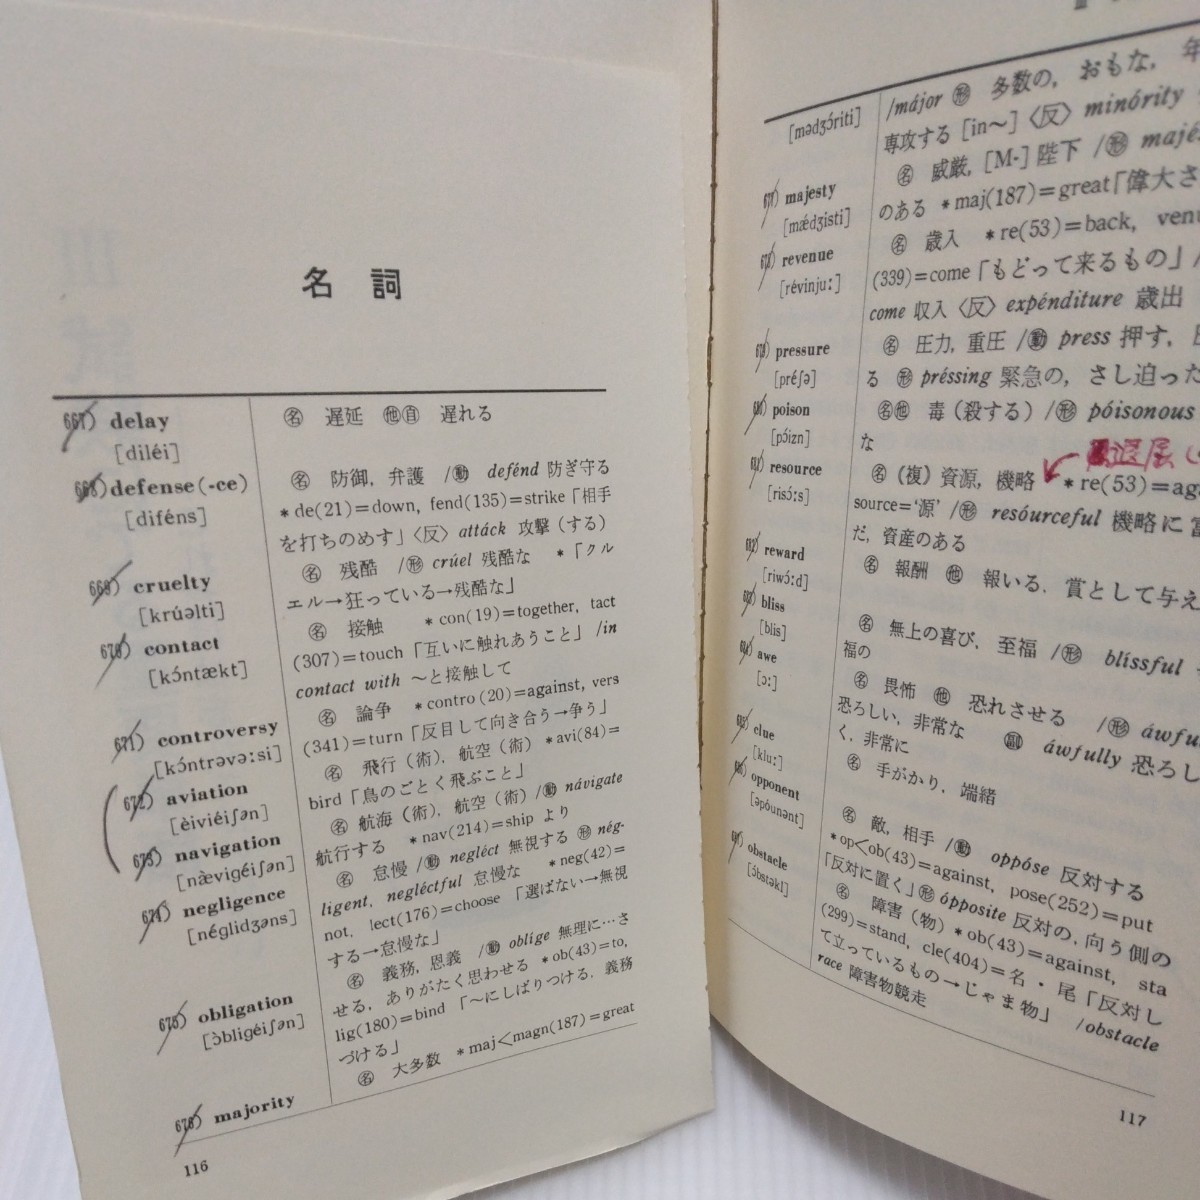 名詞
667) delay
[diléi]
㊔ 遅延 ㊀㊁ 遅れる
668) defense(-ce)
[diféns]
名 防御, 弁護 /動 defénd 防ぎ守る
*de(21)=down, fend(135)=strike「相手
を打ちのめす」〈反〉attáck 攻撃(する)
669) cruelty
[krúəlti]
名 残酷 /形 crúel 残酷な *「クル
エル→狂っている→残酷な」
670) contact
[kɔ́ntækt]
名 接触 *con(19)=together, tact
(307)=touch「互いに触れあうこと」/in
contact with ～と接触して
671) controversy
[kɔ́ntrəvəːsi]
名 論争 *contro(20)=against, vers
(341)=turn「反目して向き合う→争う」
672) aviation
[èiviéiʃən]
名 飛行(術), 航空(術) *avi(84)=
bird「鳥のごとく飛ぶこと」
673) navigation
[næ̀vigéiʃən]
名 航海(術), 航空(術)/動 návigate
航行する *nav(214)=ship より
674) negligence
[néglidʒəns]
名 怠慢 /動 negléct 無視する 形 nég-
ligent, negléctful 怠慢な *neg(42)=
not, lect(176)=choose「選ばない→無視
する→怠慢な」
675) obligation
[ɔ̀bligéiʃən]
名 義務, 恩義 /動 oblíge 無理に…さ
せる, ありがたく思わせる *ob(43)=to,
lig(180)=bind「～にしばりつける, 義務
づける」
676) majority
名 大多数 *maj<magn(187)=great
116
[mədʒɔ́riti]
/májor 形 多数の, おもな, 年
専攻する [in～]〈反〉minórity
677) majesty
[mǽdʒisti]
名 威厳, [M-] 陛下 /形 majés
のある *maj(187)=great「偉大さ
678) revenue
[révinjuː]
名 歳入 *re(53)=back, venu
(339)=come「もどって来るもの」/
come 収入〈反〉expénditure 歳出
679) pressure
[préʃə]
名 圧力, 重圧 /動 press 押す,
る 形 préssing 緊急の, さし迫った
680) poison
[pɔ́izn]
名他 毒(殺する) /形 póisonous
な
681) resource
[risɔ́ːs]
名 (複) 資源, 機略 *re(53)=aga
source='源' /形 resóurceful 機略に富
だ, 資産のある
682) reward
[riwɔ́ːd]
名 報酬 他 報いる, 賞として与え
683) bliss
[blis]
名 無上の喜び, 至福 /形 blíssful
福の
684) awe
[ɔː]
名 畏怖 他 恐れさせる /形 áwfu
恐ろしい, 非常な 副 áwfully 恐ろし
く, 非常に
685) clue
[kluː]
名 手がかり, 端緒
686) opponent
[əpóunənt]
名 敵, 相手 /動 oppóse 反対する
*op<ob(43)=against, pose(252)=put
「反対に置く」形 ópposite 反対の, 向う側の
687) obstacle
[ɔ́bstəkl]
名 障害(物) *ob(43)=against, sta
(299)=stand, cle(404)=名・尾「反対し
て立っているもの→じゃま物」 /obstacle
race 障害物競走
117